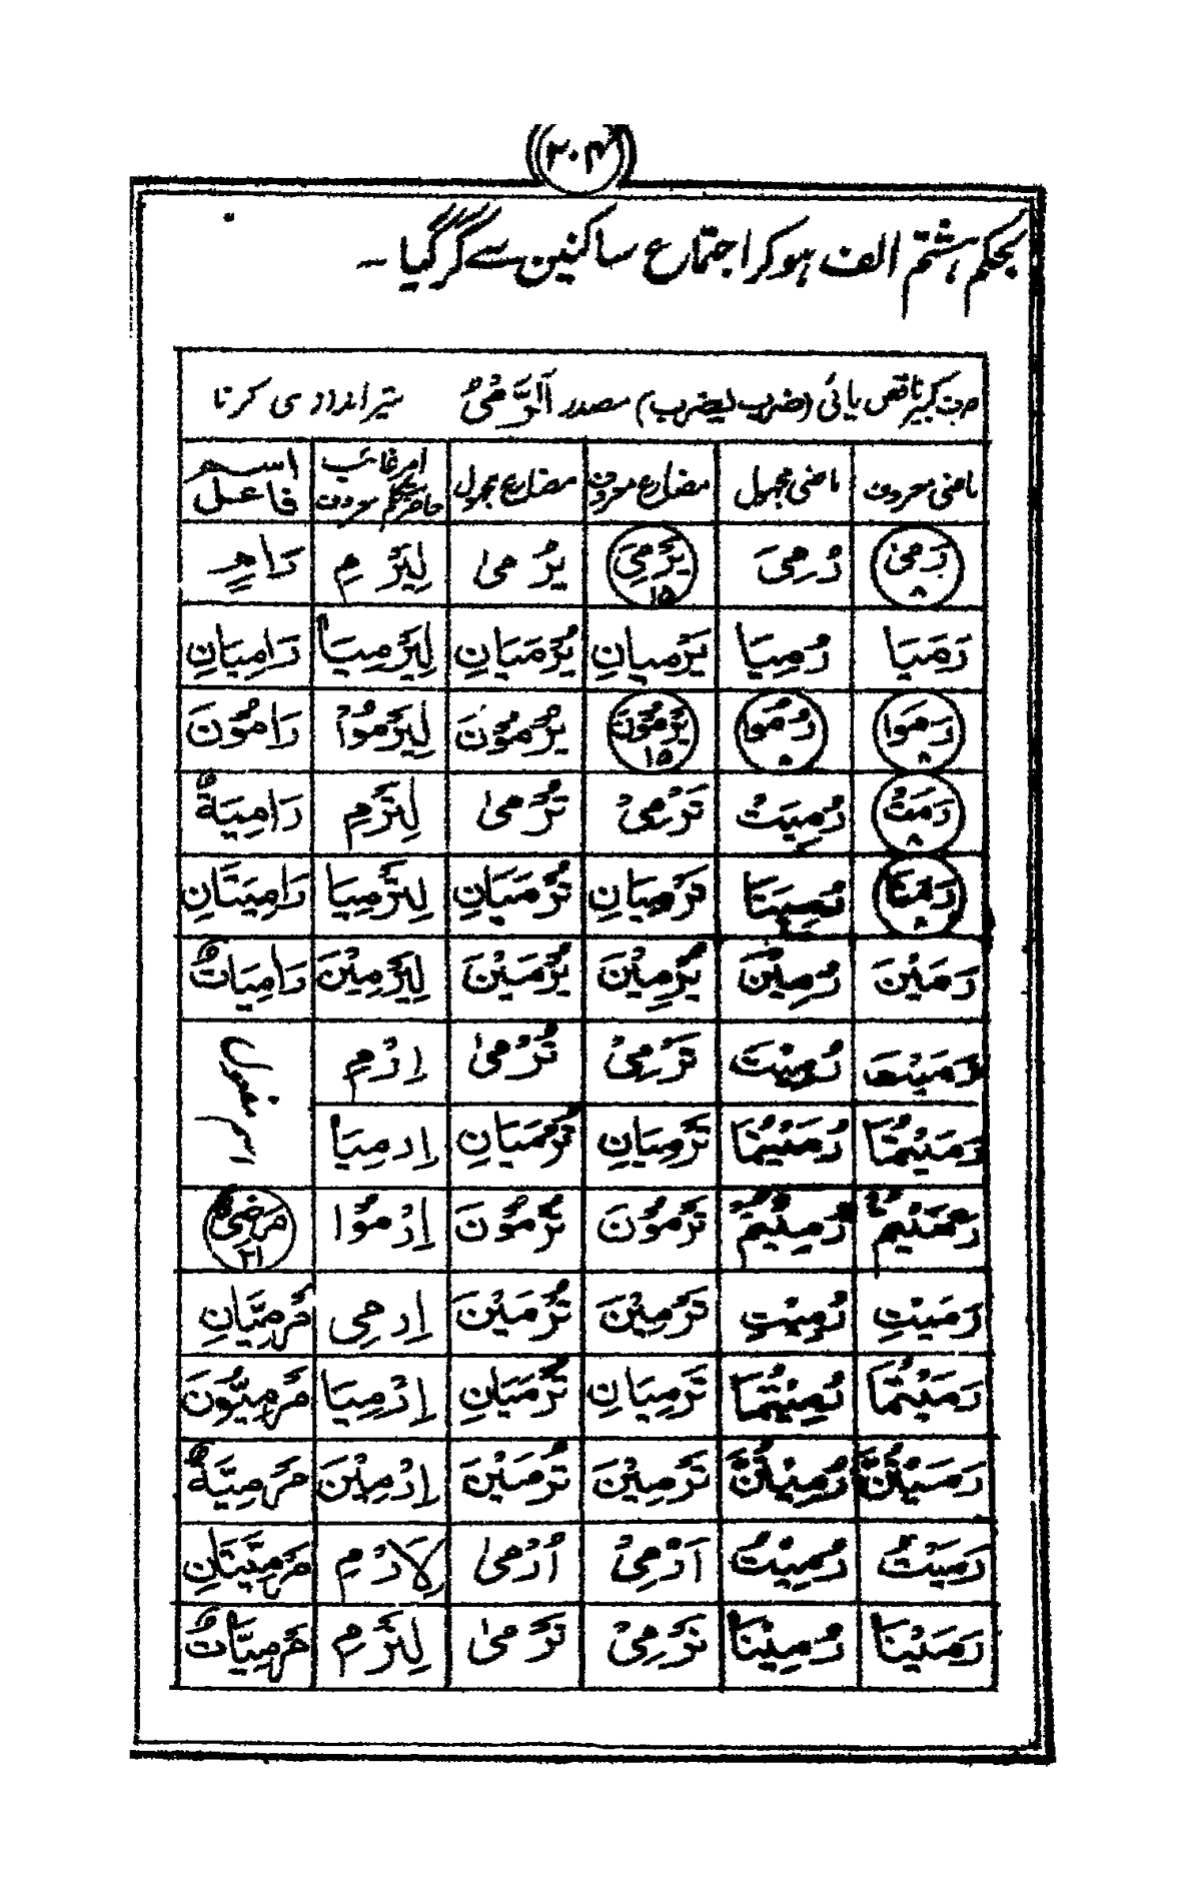 ۳۰۴
بحکم ہشتم الف ہوکر اجتماع ساکنین سے گرگیا ۔
صرف کبیر ناقص یائی (ضرب یضرب) مصدر اَلرَّمْیُ تیراندازی کرنا
ماضی معروف ماضی مجہول مضارع معروف مضارع مجہول امر غائب حاضر متکلم معروف اسم فاعل
رَمىٰ ۸ رُمِیَ یَرْمِیْ ۱۵ یُرْمىٰ لِیَرْمِ رَامٍ
رَمَیَا رُمِیَا یَرْمِیَانِ یُرْمَیَانِ لِیَرْمِیَا رَامِیَانِ
رَمَوْا ۸ رُمُوْا ۸ یَرْمُوْنَ ۱۵ یُرْمَوْنَ لِیَرْمُوْا رَامُوْنَ
رَمَتْ ۸ رُمِیَتْ تَرْمِیْ تُرْمىٰ لِتَرْمِ رَامِیَةٌ
رَمَتَا ۸ رُمِیَتَا تَرْمِیَانِ تُرْمَیَانِ لِتَرْمِیَا رَامِیَتَانِ
رَمَیْنَ رُمِیْنَ یَرْمِیْنَ یُرْمَیْنَ لِیَرْمِیْنَ رَامِیَاتٌ
رَمَیْتَ رُمِیْتَ تَرْمِیْ تُرْمىٰ اِرْمِ اسم مفعول
رَمَیْتُمَا رُمِیْتُمَا تَرْمِیَانِ تُرْمَیَانِ اِرْمِیَا
رَمَیْتُمْ رُمِیْتُمْ تَرْمُوْنَ تُرْمَوْنَ اِرْمُوْا مَرْمِیٌّ ۲۱
رَمَیْتِ رُمِیْتِ تَرْمِیْنَ تُرْمَیْنَ اِرْمِی مَرْمِیَّانِ
رَمَیْتُمَا رُمِیْتُمَا تَرْمِیَانِ تُرْمَیَانِ اِرْمِیَا مَرْمِیُّوْنَ
رَمَیْتُنَّ رُمِیْتُنَّ تَرْمِیْنَ تُرْمَیْنَ اِرْمِیْنَ مَرْمِیَّةٌ
رَمَیْتُ رُمِیْتُ اَرْمِیْ اُرْمىٰ لِاَرْمِ مَرْمِیَّتَانِ
رَمَیْنَا رُمِیْنَا نَرْمِیْ نُرْمىٰ لِنَرْمِ مَرْمِیَّاتٌ